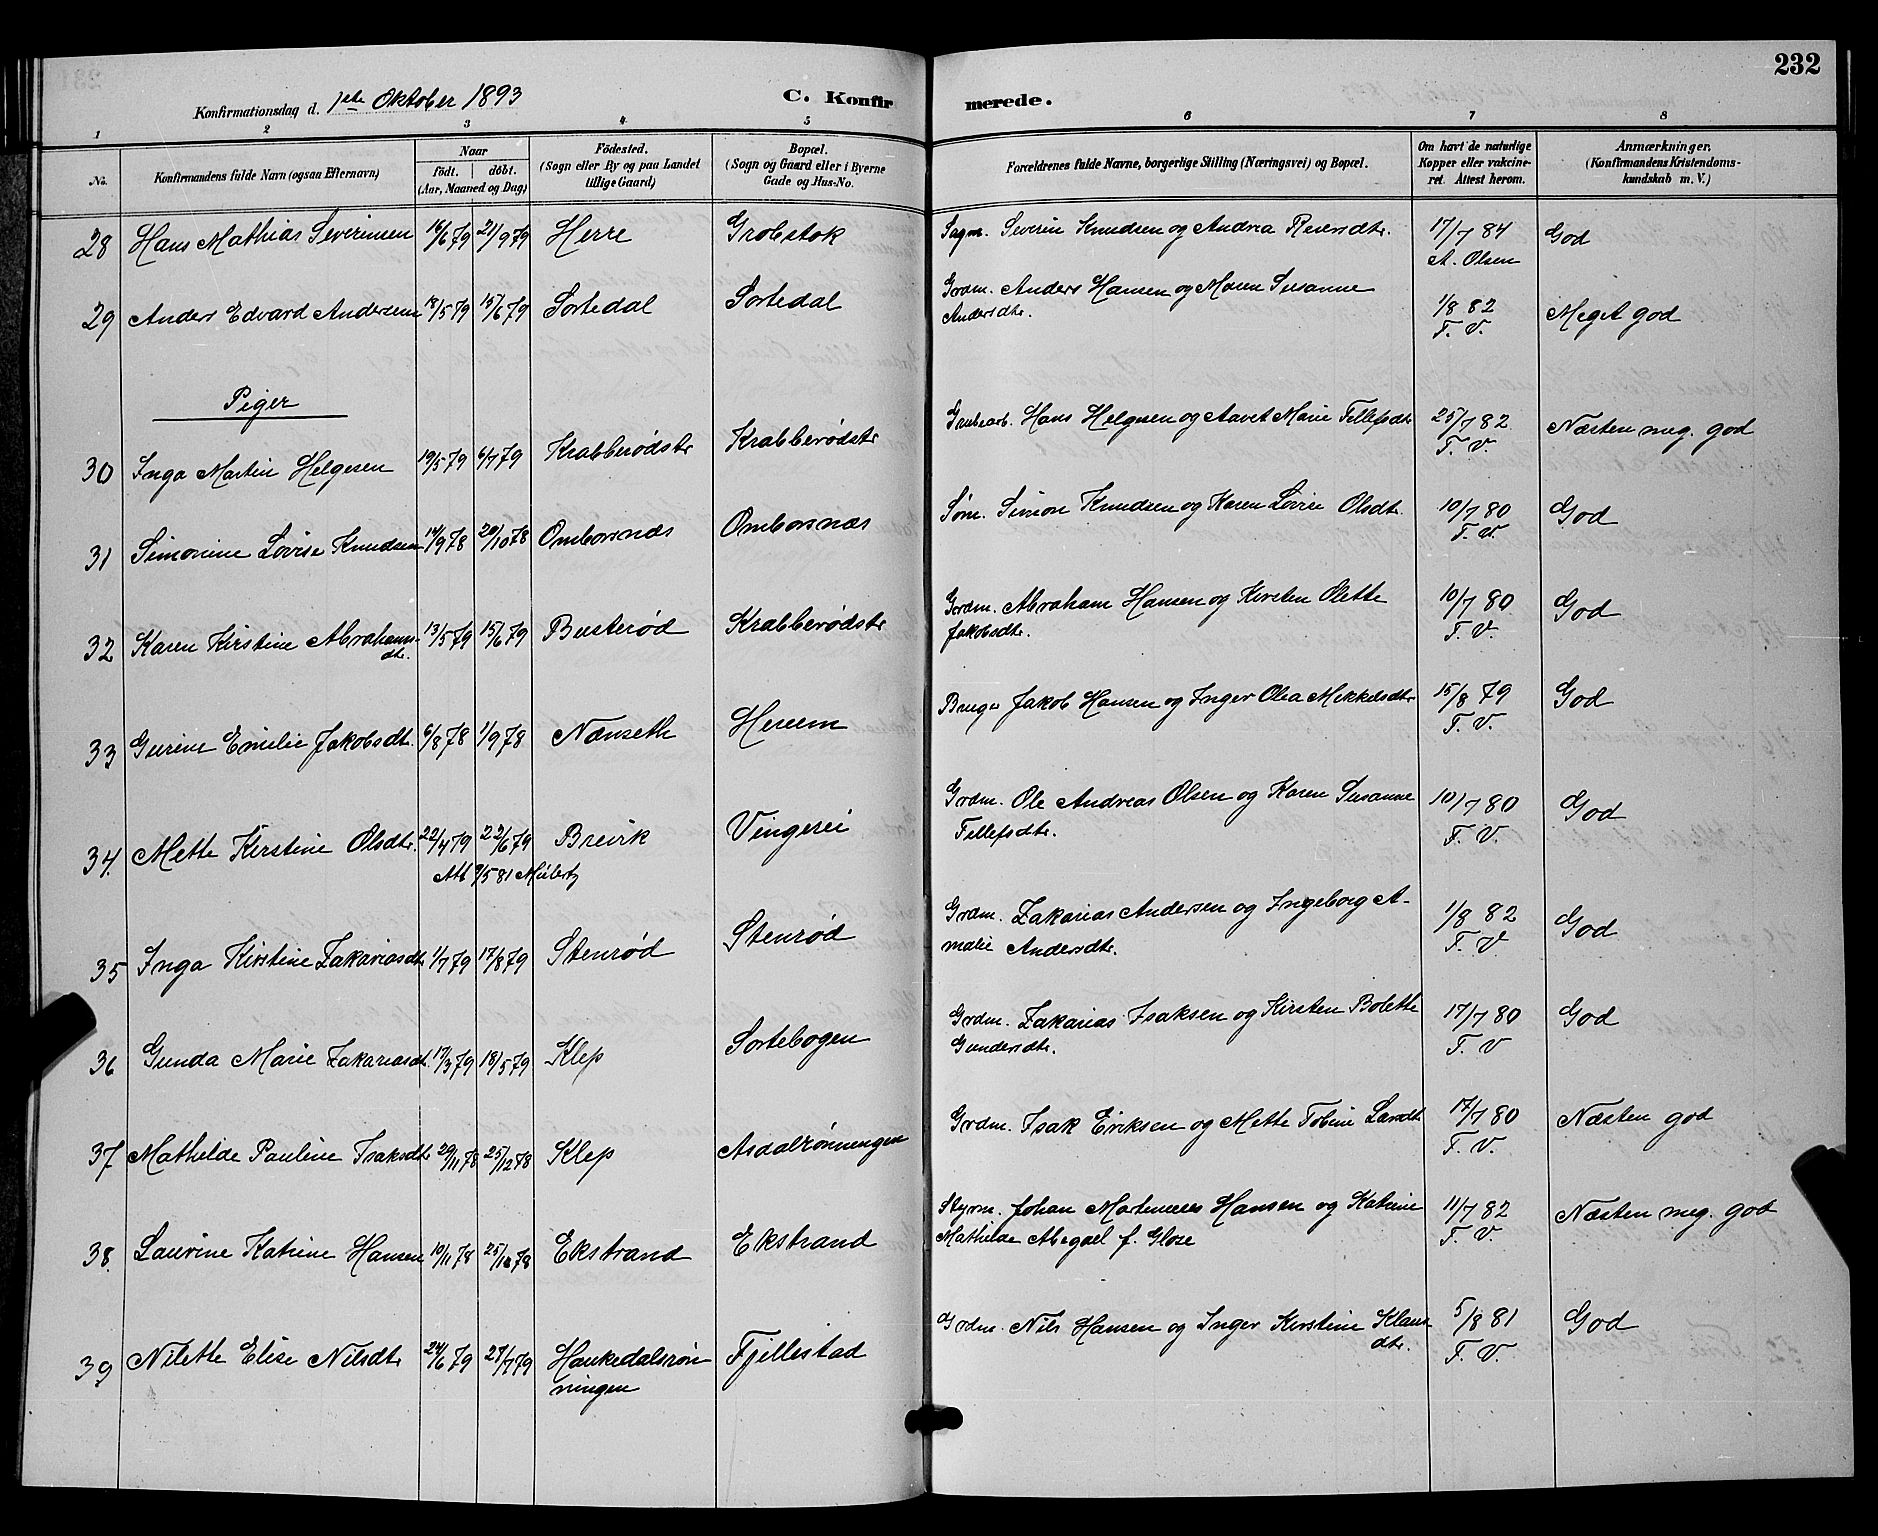 232
Konfirmationsdag d. 1ste Oktober 1893 C. Konfirmerede.
1 2 3 4 5 6 7 8
No. Konfirmandens fulde Navn (ogsaa Efternavn) Naar födt. döbt. (Aar, Maaned og Dag) Födested. (Sogn eller By og paa Landet tillige Gaard) Bopæl. (Sogn og Gaard eller i Byerne Gade og Hus-No. Forældrenes fulde Navne, borgerlige Stilling (Næringsvei) og Bopæl. Om havt de naturlige Kopper eller vakcineret. Attest herom. Anmærkninger. (Konfirmandens Kristendomskundskab m. V.)
28 Hans Mathias Severinsen 16/6 79 21/9 79 Herre Grobstok Sagm. Severin Knudsen og Andrea Reiersdtr. 17/7 84 God
A. Olsen
29 Anders Edvard Andersen 18/5 79 15/6 79 Sortedal Sortedal Grdm. Anders Hansen og Maren Susanne 1/8 82 Meget god
Andersdtr. F. V.
Piger
30 Inga Martin Helgesen 19/5 79 6/7 79 Krabberødstr Krabberødstr Grubearb. Hans Helgesen og Aavet Marie Tellefsdtr 25/7 82 Næsten meg. god
F. V.
31 Simonine Lovise Knudsen 14/9 78 20/10 78 Ombornæs Ombornæs Søm. Simon Knudsen og Karen Lovise Olsdt. 10/7 80 God
F. V.
32 Karen Kirstine Abrahams- 13/5 79 15/6 79 Busterød Krabberødstr Grdm. Abraham Hansen og Kirsten Olette 10/7 80 God
dtr. Jakobsdtr. F. V.
33 Gurine Emilie Jakobsdt. 6/8 78 1/9 78 Nænseth Hereem Bruger Jakob Hansen og Inger Olea Mikkelsdtr 15/8 79 God
F. V.
34. Mette Kirstine Olsdtr. 22/4 79 22/6 79 Brevik Vingerei Grdm. Ole Andreas Olsen og Karen Susanne 10/7 80 God
Tellefsdtr. F. V.
35 Inga Kirstine Zakariasdtr 1/7 79 17/8 79 Stenrød Stenrød Grdm. Zakarias Andersen og Ingeborg A- 1/8 82 God
malie Andersdtr. F. V
36 Gunda Marie Zakariasdt. 17/3 79 18/5 79 Klep Sortebogen Grdm. Zakarias Isaksen og Kirsten Bolette 17/7 80 God
Gundersdtr. F. V
37 Mathilde Pauline Isaksdtr 29/11 78 25/12 78 Klep Asdalrönnengen Grdm. Isak Eriksen og Mette Tobine Larsdtr 17/7 80 Næsten god
F. V.
38. Laurine Katrine Hansen 10/11 78 25/12 78 Ekstrand Ekstrand Styrm. Johan Martenius Hansen og Katrine 11/7 82 Næsten meg. god
Mathilde Abegael f. Glose F. V.
39 Nilette Elise Nilsdtr 24/6 79 27/7 79 Haukedalsrön- Fjellestad Grdm. Nils Hansen og Inger Kirstine Klaus 5/8 81 God
ningen dtr. F. V.